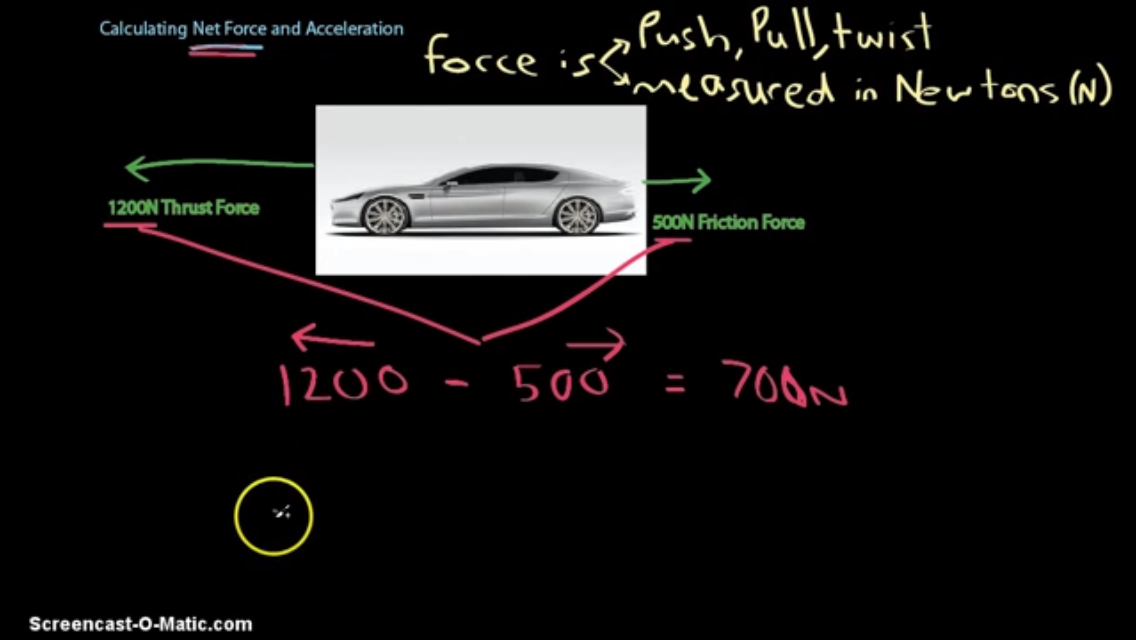 Calculating Net Force and Acceleration
force is Push, Pull, twist
measured in Newtons (N)
1200N Thrust Force
500N Friction Force
1200 - 500 = 700N
Screencast-O-Matic.com